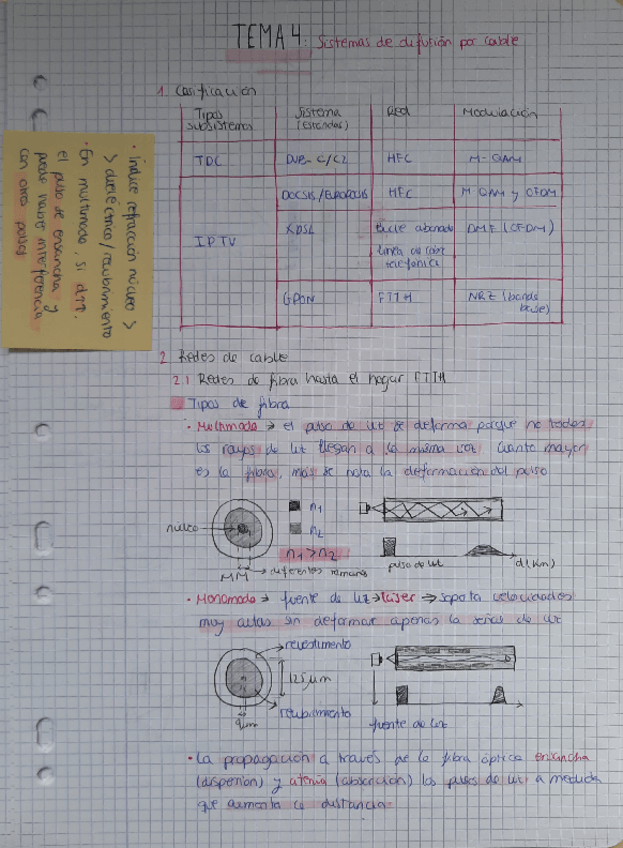 TEMA 4: Sistemas de difusión por cable
1. Casificación
Tipos subsistema | Sistema (Estándas) | Red | Modulación
TDC | DVB-C/C2 | HFC | M-QAM
IPTV | DOCSIS/EURODOCSIS | HFC | M-QAM y OFDM
XDSL | Bucle abonado línea de cobre telefónica | DMT (OFDM)
GPON | FTTH | NRZ (banda base)
• Índice refracción núcleo >
> dieléctrico/recubrimiento
• En multimodo, si d↑↑.
el pulso se ensancha y
puede haber interferencia
con otros pulsos
2 Redes de cable
2.1 Redes de fibra hasta el hogar FTTH
Tipos de fibra
• Multimodo → el pulso de luz se deforma porque no todos
los rayos de luz llegan a la misma vez. Cuanto mayor
es la fibra, más se nota la deformación del pulso
núcleo
n1
n2
n1>n2
MM → diferentes tamaños
pulso de luz
d(km)
• Monomodo → fuente de luz → láser → soporta velocidades
muy altas sin deformar apenas la señal de luz
revestimiento
125 µm
recubrimiento
9µm
fuente de luz
• La propagación a través de la fibra óptica ensancha
(dispersión) y atenúa (absorción) los pulsos de luz a medida
que aumenta la distancia.